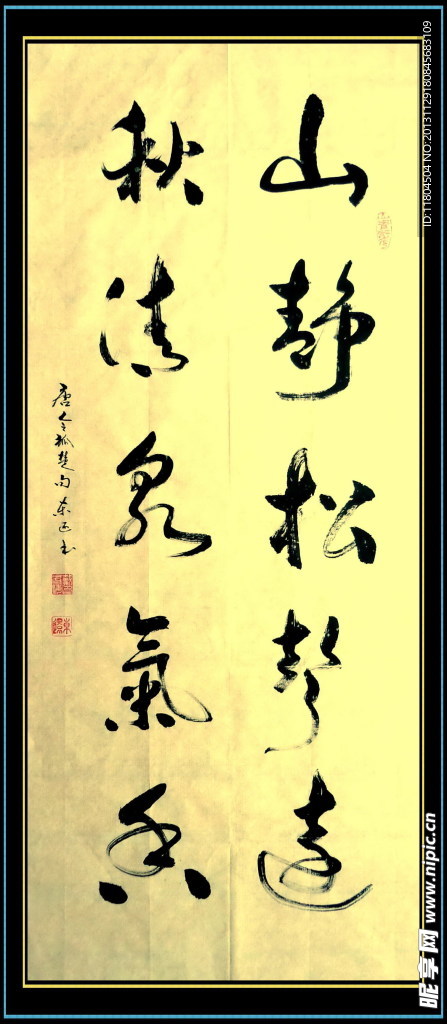 山静松聲遠
秋清泉氣香
唐令狐楚句東正书
ID:11804504 NO:20131129180845683109
昵享网 www.nipic.cn